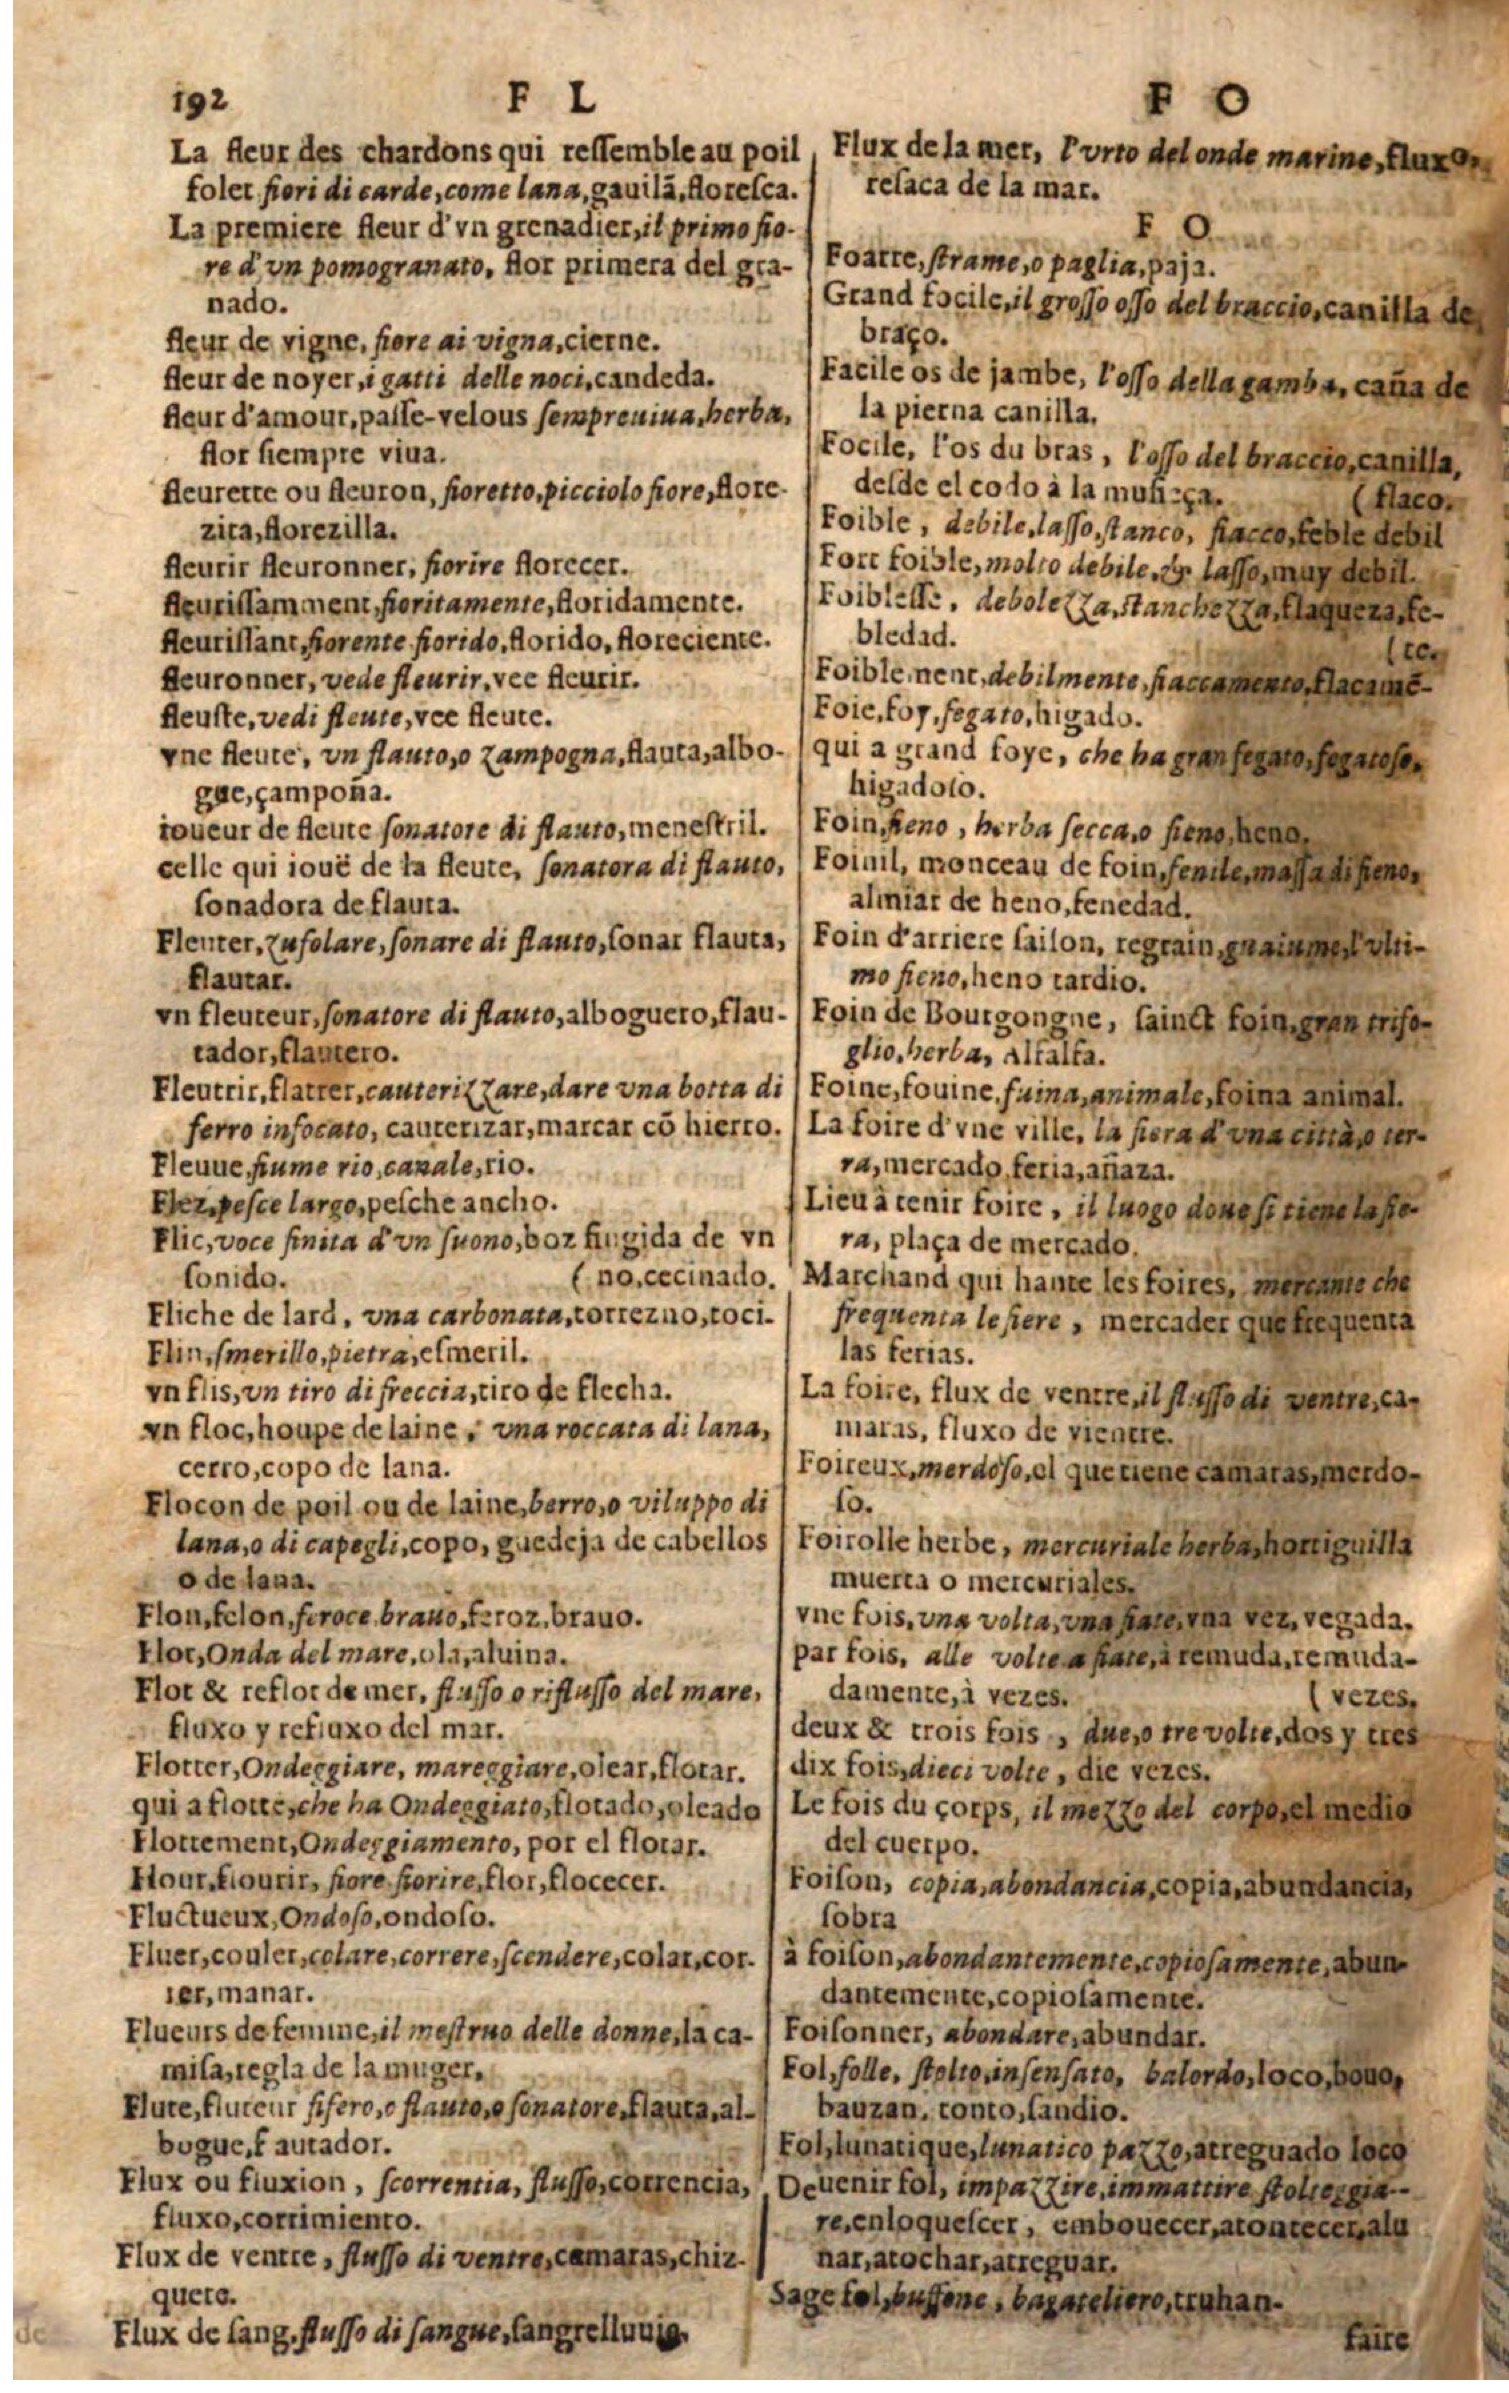 192 F L F O
La fleur des chardons qui reſſemble au poil
folet fiori di carde, come lana, gauilã, floreſca.
La premiere fleur d'vn grenadier, il primo fio-
re d'vn pomogranato, flor primera del gra-
nado.
fleur de vigne, fiore ai vigna, cierne.
fleur de noyer, i gatti delle noci, candeda.
fleur d'amour, paſſe-velous ſempreuiua, herba,
flor ſiempre viua.
fleurette ou fleuron, fioretto, picciolo fiore, flore-
zita, florezilla.
fleurir fleuronner, fiorire florecer.
fleuriſſamment, fioritamente, floridamente.
fleuriſſant, fiorente fiorido, florido, floreciente.
fleuronner, vede fleurir, vee fleurir.
fleuſte, vedi fleute, vee fleute.
vne fleute, vn flauto, o zampogna, flauta, albo-
gue, çampoña.
ioueur de fleute ſonatore di flauto, meneſtril.
celle qui iouë de la fleute, ſonatora di flauto,
ſonadora de flauta.
Fleuter, zufolare, ſonare di flauto, ſonar flauta,
flautar.
vn fleuteur, ſonatore di flauto, alboguero, flau-
tador, flautero.
Fleutrir, flatrer, cauterizzare, dare vna botta di
ferro infocato, cauterizar, marcar cõ hierro.
Fleuue, fiume rio, canale, rio.
Flez, peſce largo, peſche ancho.
Flic, voce finita d'vn ſuono, boz fingida de vn
ſonido. ( no, cecinado.
Fliche de lard, vna carbonata, torrezno, toci-
Flin, ſmerillo, pietra, eſmeril.
vn flis, vn tiro di freccia, tiro de flecha.
vn floc, houpe de laine, vna roccata di lana,
cerro, copo de lana.
Flocon de poil ou de laine, berro, o viluppo di
lana, o di capegli, copo, guedeja de cabellos
o de lana.
Flon, felon, feroce brauo, feroz, brauo.
Flot, Onda del mare, ola, aluina.
Flot & reflot de mer, fluſſo o rifluſſo del mare,
fluxo y refluxo del mar.
Flotter, Ondeggiare, mareggiare, olear, flotar.
qui a flotté, che ha Ondeggiato, flotado, oleado
Flottement, Ondeggiamento, por el flotar.
Flour, flourir, fiore fiorire, flor, flocecer.
Fluctueux, Ondoſo, ondoſo.
Fluer, couler, colare, correre, ſcendere, colar, cor-
rer, manar.
Flueurs de femme, il meſtruo delle donne, la ca-
miſa, regla de la muger.
Flute, fluteur fifero, o flauto, o ſonatore, flauta, al-
bogue, f autador.
Flux ou fluxion, ſcorrentia, fluſſo, correncia,
fluxo, corrimiento.
Flux de ventre, fluſſo di ventre, camaras, chiz-
quete.
Flux de ſang, fluſſo di ſangue, ſangrelluuia.
Flux de la mer, l'vrto del onde marine, fluxo,
reſaca de la mar.
F O
Foarre, ſtrame, o paglia, paja.
Grand focile, il groſſo oſſo del braccio, canilla de
braço.
Facile os de jambe, l'oſſo della gamba, caña de
la pierna canilla.
Focile, l'os du bras, l'oſſo del braccio, canilla,
deſde el codo à la muñeça. ( flaco.
Foible, debile, laſſo, ſtanco, fiacco, feble debil
Fort foible, molto debile, & laſſo, muy debil.
Foibleſſe, debolezza, ſtanchezza, flaqueza, fe-
bledad. ( te.
Foiblement, debilmente, fiaccamento, flacamẽ-
Foie, foy, fegato, higado.
qui a grand foye, che ha gran fegato, fegatoſo,
higadoſo.
Foin, fieno, herba ſecca, o fieno, heno.
Foinil, monceau de foin, fenile, maſſa di fieno,
almiar de heno, fenedad.
Foin d'arriere ſaiſon, regrain, guaiume, l'vlti-
mo fieno, heno tardio.
Foin de Bourgongne, ſainct foin, gran trifo-
glio, herba, Alfalfa.
Foine, fouine, fuina, animale, foina animal.
La foire d'vne ville, la fiera d'vna città, o ter-
ra, mercado, feria, añaza.
Lieu à tenir foire, il luogo doue ſi tiene la fie-
ra, plaça de mercado.
Marchand qui hante les foires, mercante che
frequenta le fiere, mercader que frequenta
las ferias.
La foire, flux de ventre, il fluſſo di ventre, ca-
maras, fluxo de vientre.
Foireux, merdoſo, el que tiene camaras, merdo-
ſo.
Foirolle herbe, mercuriale herba, hortiguilla
muerta o mercuriales.
vne fois, vna volta, vna fiate, vna vez, vegada.
par fois, alle volte a fiate, à remuda, remuda-
damente, à vezes. ( vezes.
deux & trois fois, due, o tre volte, dos y tres
dix fois, dieci volte, die vezes.
Le fois du çorps, il mezzo del corpo, el medio
del cuerpo.
Foiſon, copia, abondancia, copia, abundancia,
ſobra
à foiſon, abondantemente, copioſamente, abun-
dantemente, copioſamente.
Foiſonner, abondare, abundar.
Fol, folle, ſtolto, inſenſato, balordo, loco, bouo,
bauzan, tonto, ſandio.
Fol, lunatique, lunatico pazzo, atreguado loco
Deuenir fol, impazzire, immattire ſtolteggia-
re, enloqueſcer, embouecer, atontecer, alu
nar, atochar, atreguar.
Sage fol, buffone, bagateliero, truhan.
faire